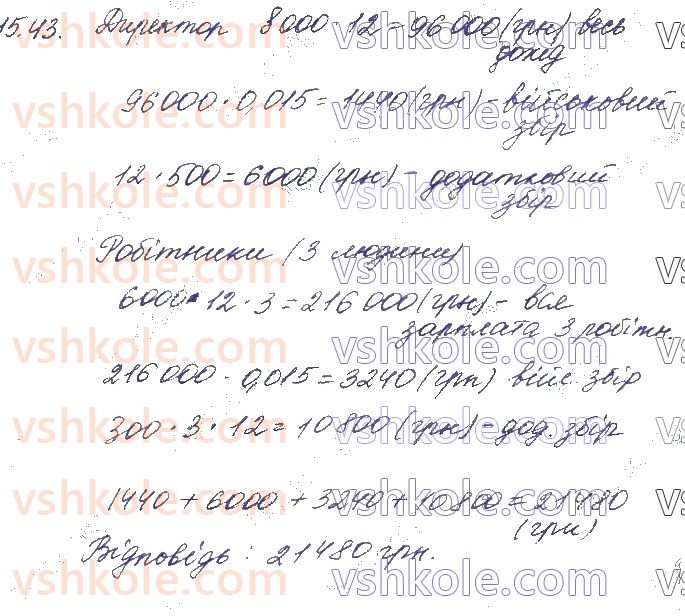 15.43. Директор 8000 · 12 = 96 000 (грн) весь
дохід
96000 · 0,015 = 1440 (грн) - військовий
збір
12 · 500 = 6000 (грн) - додатковий
збір
Робітники (3 людини)
6000 · 12 · 3 = 216 000 (грн) - вся
зарплата 3 робітн.
216 000 · 0,015 = 3240 (грн) війс. збір
300 · 3 · 12 = 10 800 (грн) - дод. збір
1440 + 6000 + 3240 + 10 800 = 21480
(грн)
Відповідь : 21 480 грн.
vshkole.com